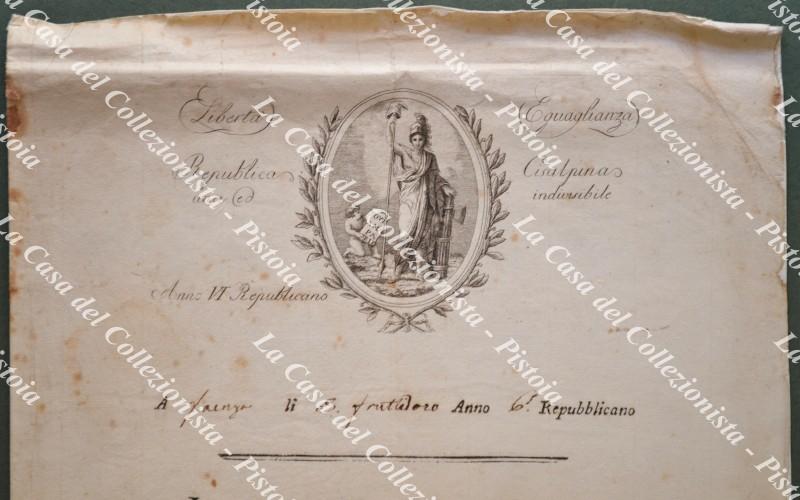 Libertà Eguaglianza
Republica Cisalpina
una ed indivisibile
Anno VI Republicano
A Faenza li Frutidoro Anno 6.º Repubblicano
La Casa del Collezionista - Pistoia